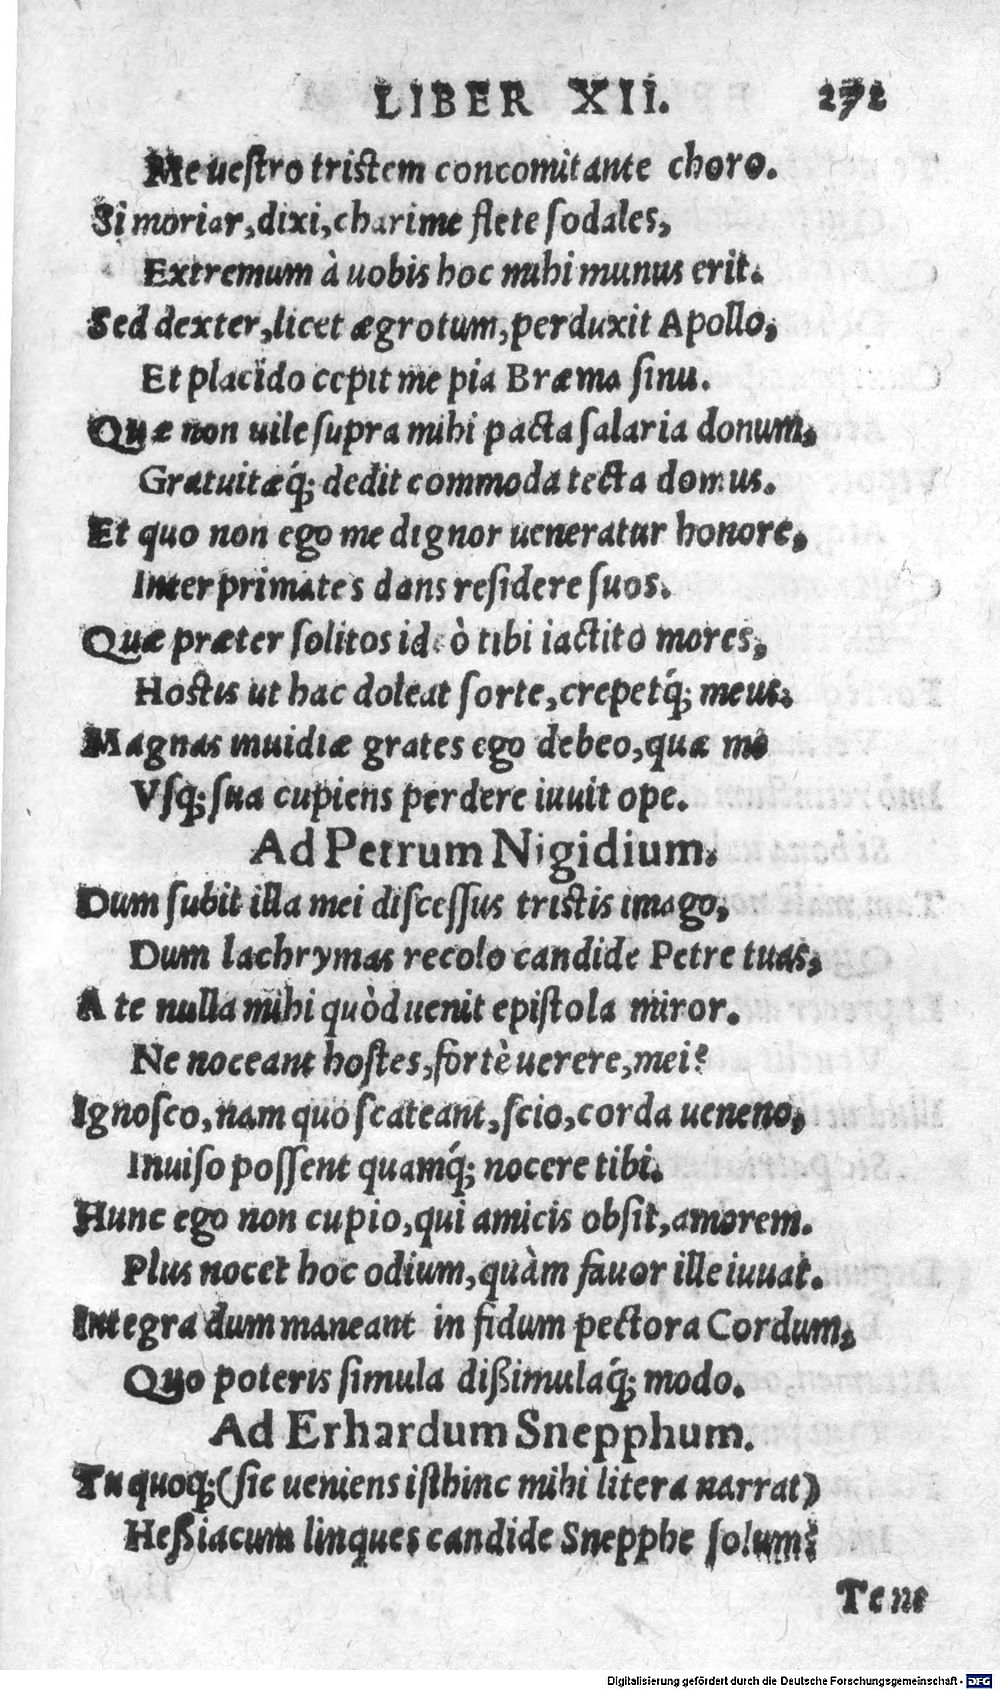 LIBER XII. 272
Me ueſtro tristem concomitante choro.
Si moriar, dixi, charime flete ſodales,
Extremum à uobis hoc mihi munus erit.
Sed dexter, licet ægrotum, perduxit Apollo,
Et placido cepit me pia Bræma ſinu.
Quæ non uile ſupra mihi pacta ſalaria donum,
Gratuitæq́; dedit commoda tecta domus.
Et quo non ego me dignor ueneratur honore,
Inter primates dans reſidere ſuos.
Quæ præter ſolitos ideò tibi iactito mores,
Hostis ut hac doleat ſorte, crepetq́; meus.
Magnas inuidiæ grates ego debeo, quæ me
Vſq; ſua cupiens perdere iuuit ope.
Ad Petrum Nigidium.
Dum ſubit illa mei diſceſſus tristis imago,
Dum lachrymas recolo candide Petre tuas,
A te nulla mihi quòd uenit epiſtola miror.
Ne noceant hoſtes, fortè uerere, mei?
Ignoſco, nam quo ſcateant, ſcio, corda ueneno,
Inuiſo poſſent quamq́; nocere tibi.
Hunc ego non cupio, qui amicis obſit, amorem.
Plus nocet hoc odium, quàm fauor ille iuuat.
Integra dum maneant in fidum pectora Cordum,
Quo poteris ſimula dißimulaq́; modo.
Ad Erhardum Snepphum.
Tu quoq; (ſic ueniens iſthinc mihi litera narrat)
Heßiacum linques candide Snepphe ſolum?
Tene
Digitalisierung gefördert durch die Deutsche Forschungsgemeinschaft - DFG